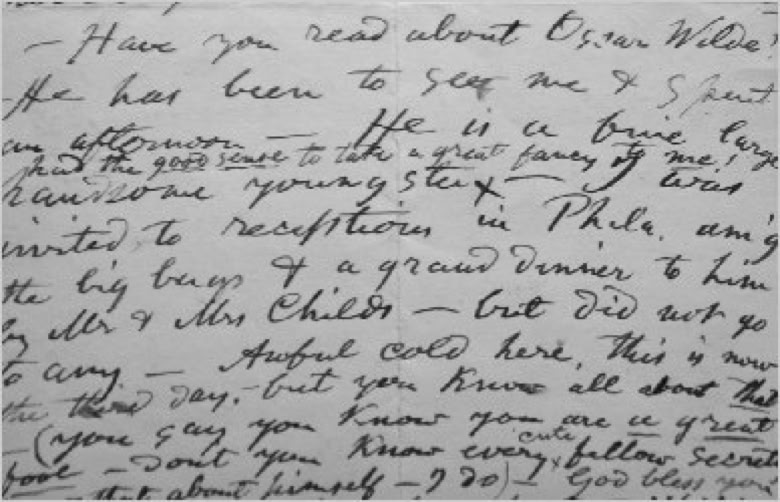 — Have you read about Oscar Wilde?
He has been to see me & spent
an afternoon — He is a fine large
had the good sense to take a great fancy to me!
handsome youngster — I was
invited to receptions in Phila. am'g
the big bugs & a grand dinner to him
by Mr & Mrs Childs — but did not go
to any — Awful cold here, this is now
the third day, — but you know all about that
— (you say you know you are a great
cute
fool — don't you know every fellow secretly
that about himself — I do) — God bless you